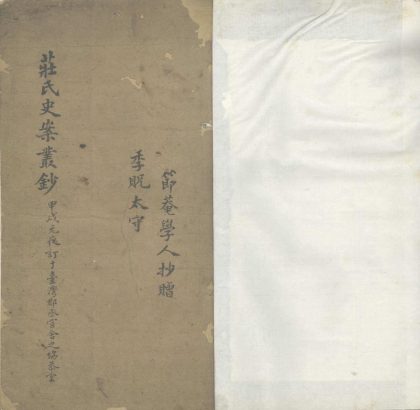 節菴學人抄贈
季貺太守
莊氏史案叢鈔
甲戌元夜訂于臺灣郡丞官舍之協恭堂